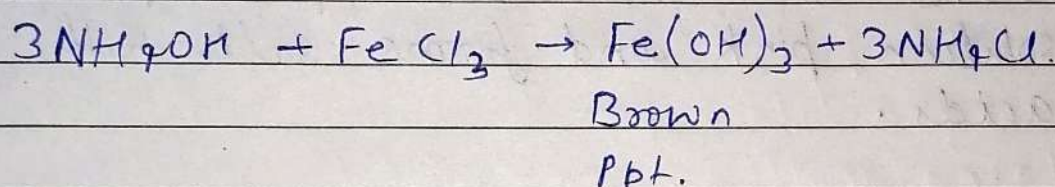 3NH4OH + FeCl3 → Fe(OH)3 + 3NH4Cl.
Brown
Ppt.